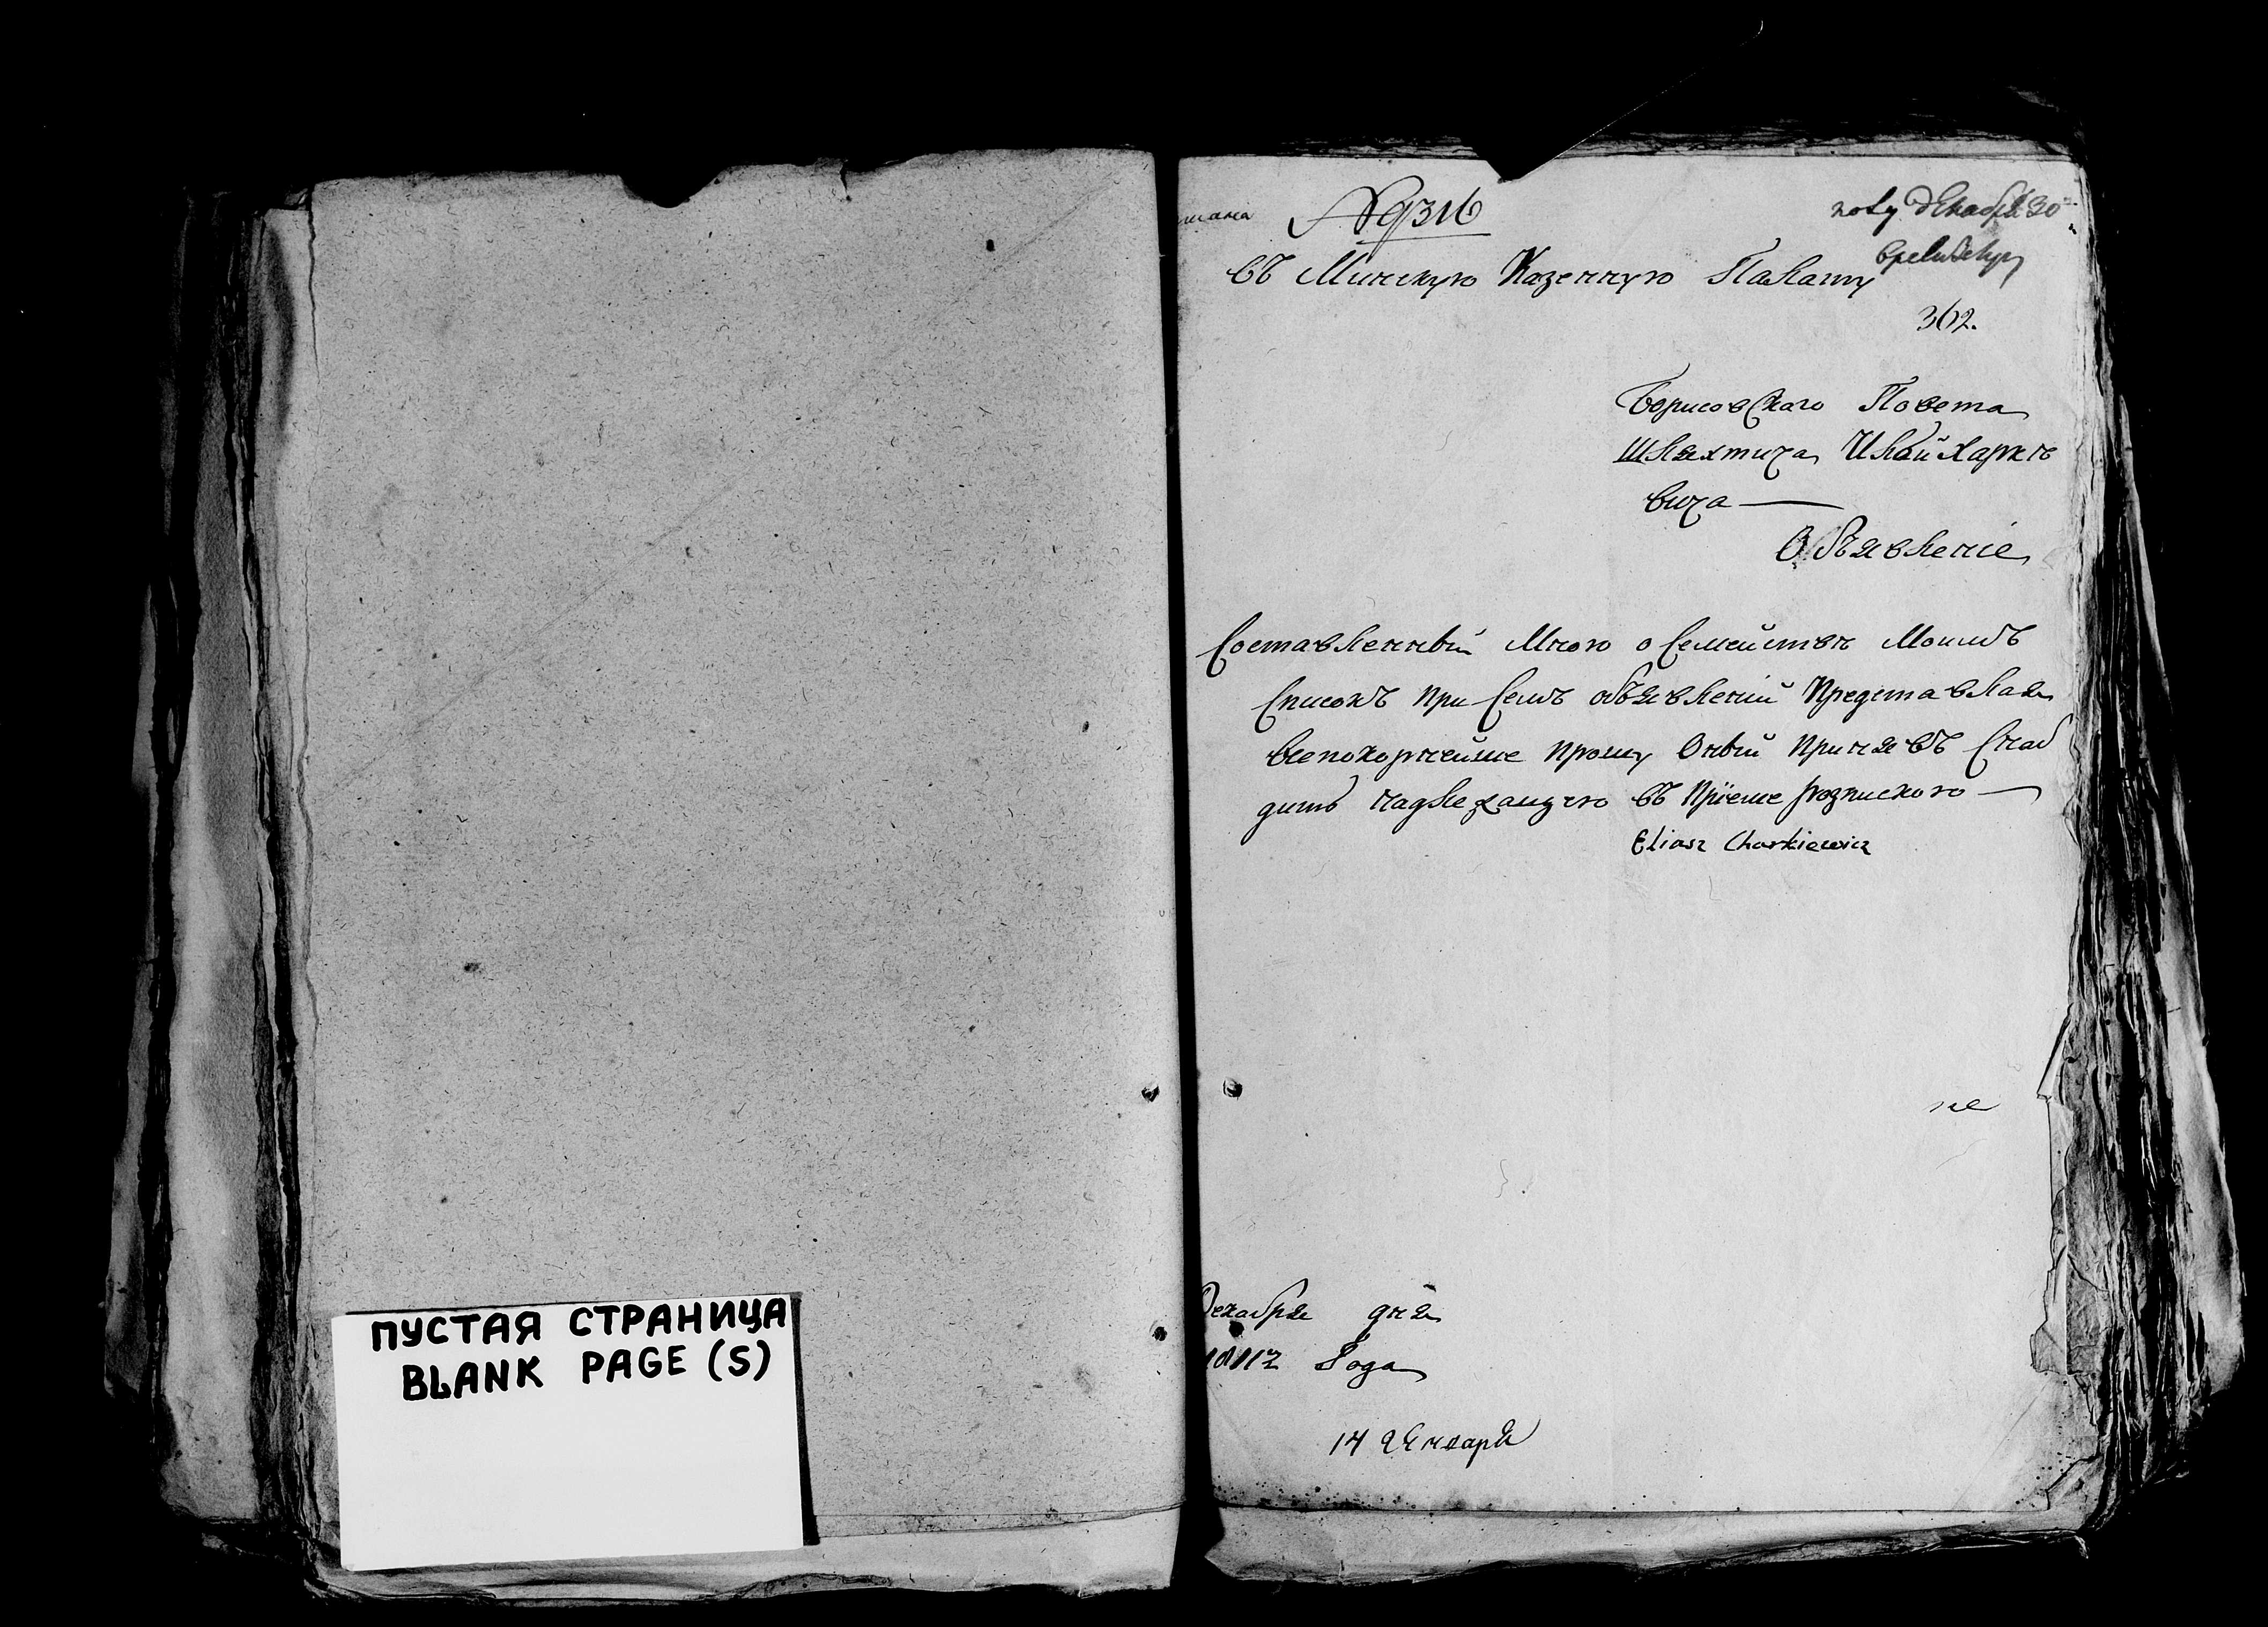 ПУСТАЯ СТРАНИЦА
BLANK PAGE (S)
№ 9316
декабря 20
Въ Минскую Казенную Палату
362.
Борисовского Повета
Шляхтича Ильи Харке
вича —
Объявление
Составленный Мною о Семействе Моимъ
Списокъ при Семъ объявлении Представляя
Всепокорнейше прошу Оный принявъ Снаб
дить надлежащую въ приеме розпискою —
Eliasz Charkiewicz
не
Декабря дня
Года
14 Января